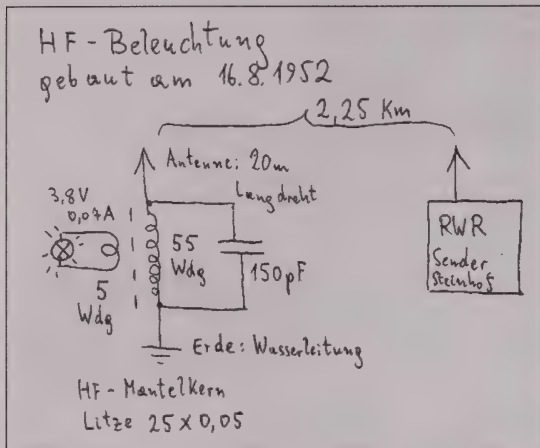 HF-Beleuchtung
gebaut am 16.8.1952
2,25 Km
Antenne: 20m
Langdraht
3,8V
0,07A
55
Wdg
150pF
5
Wdg
RWR
Sender
Steinhof
Erde: Wasserleitung
HF-Mantelkern
Litze 25 x 0,05